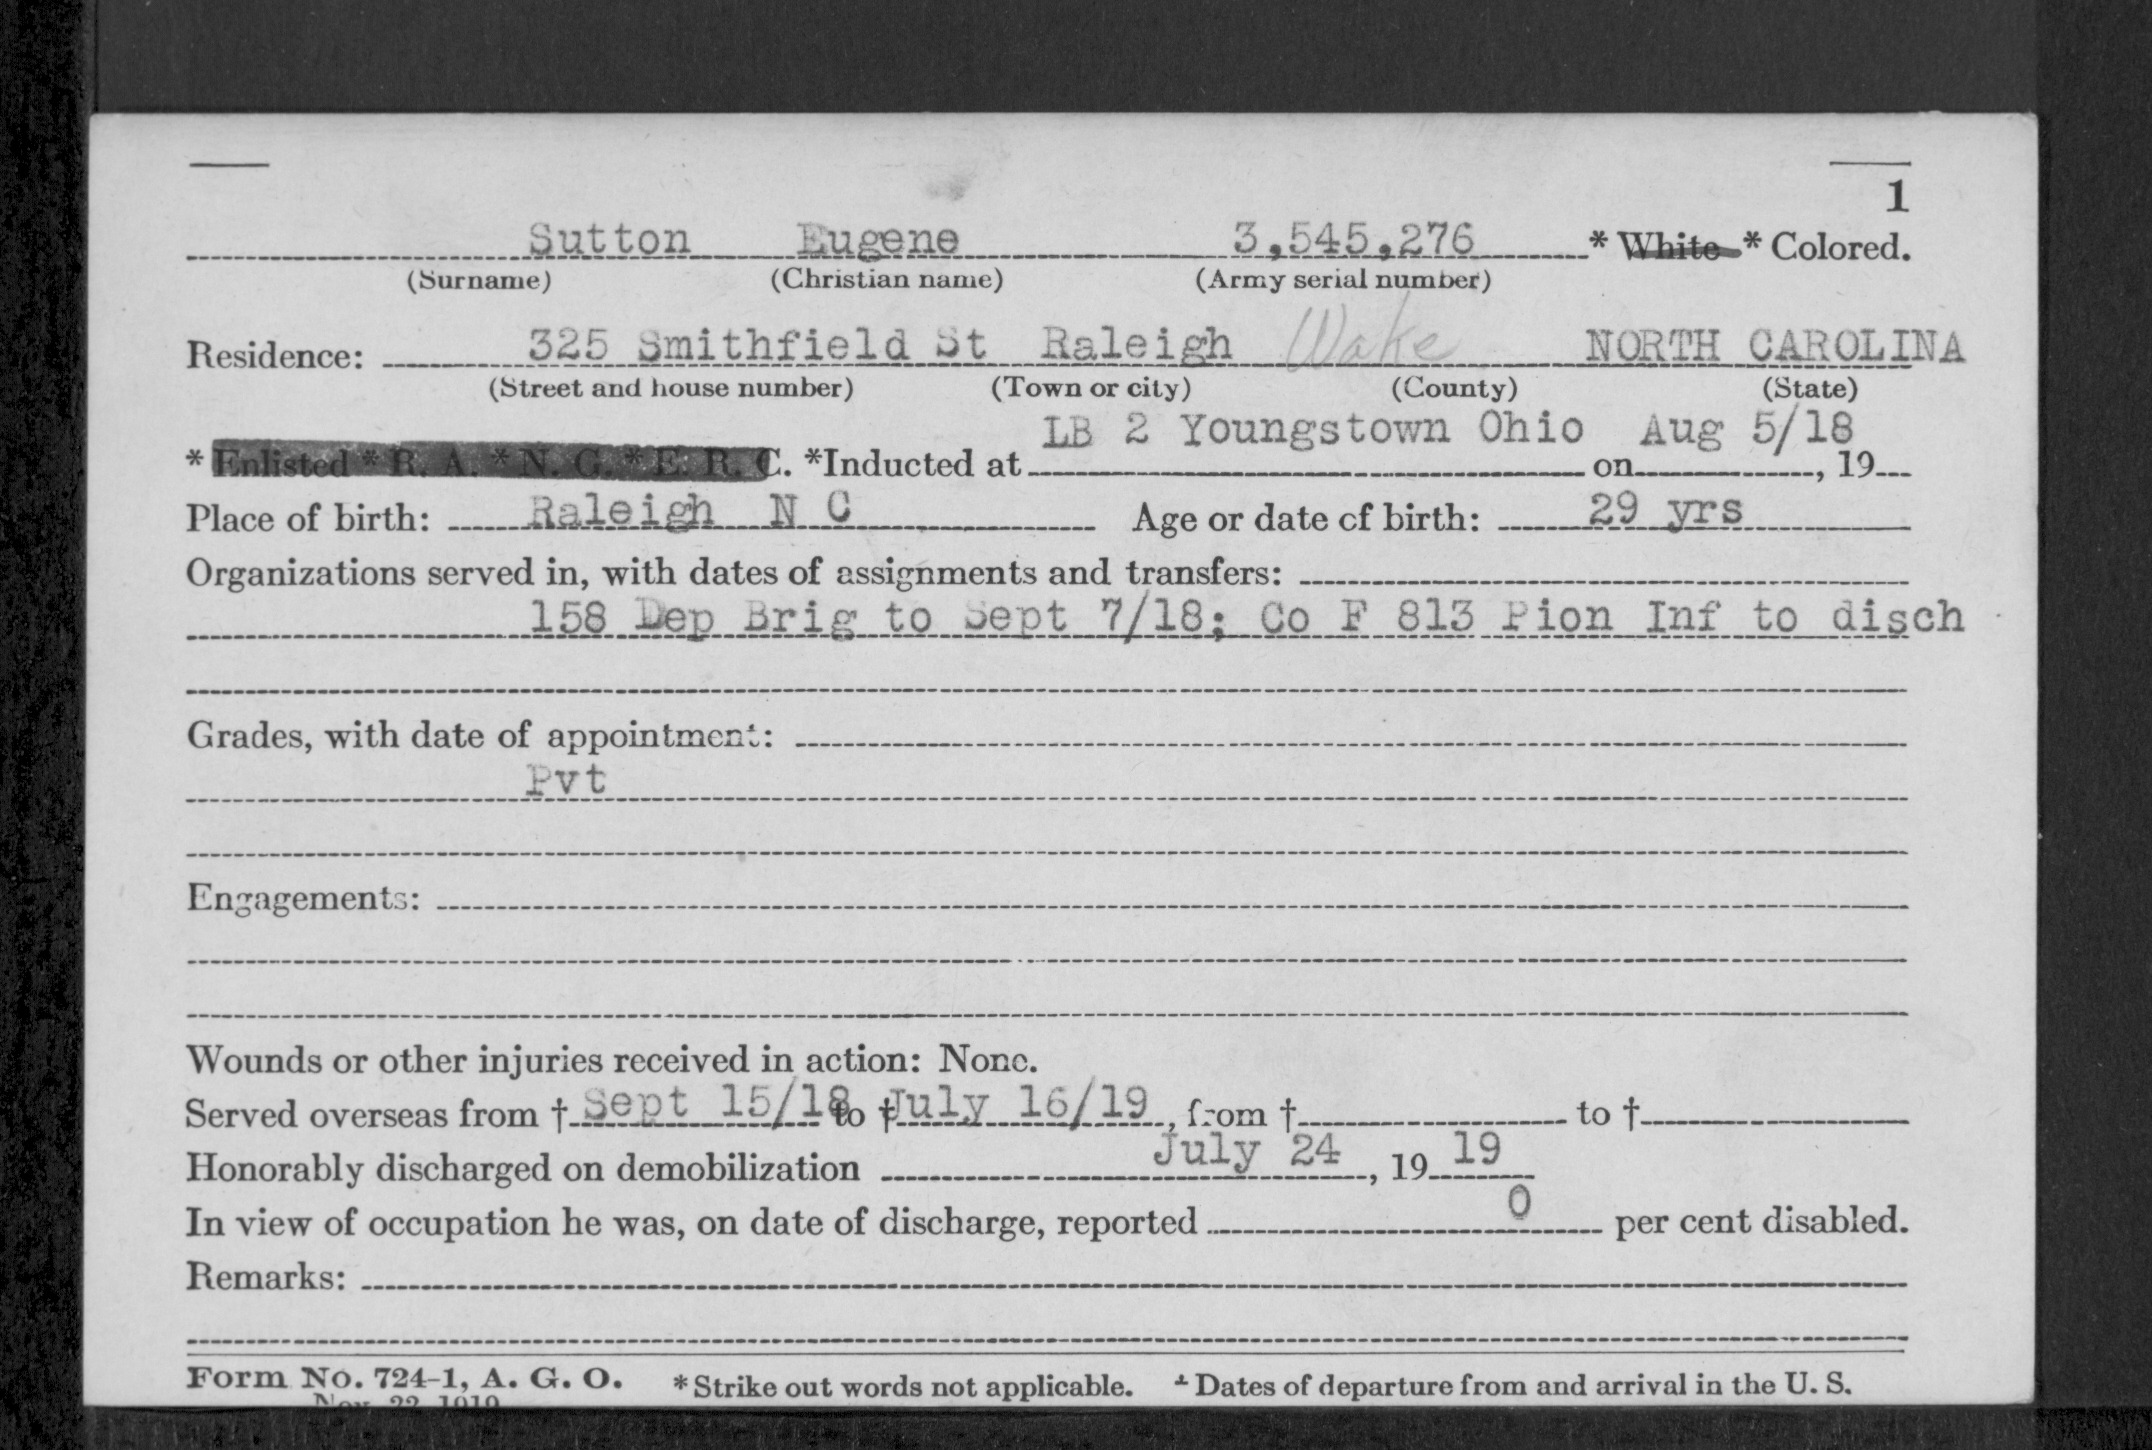 1
Sutton Eugene 3,545,276 * White * Colored.
(Surname) (Christian name) (Army serial number)
Residence: 325 Smithfield St Raleigh Wake NORTH CAROLINA
(Street and house number) (Town or city) (County) (State)
LB 2 Youngstown Ohio Aug 5/18
* Enlisted * R. A. * N. G. * E. R. C. *Inducted at on , 19
Place of birth: Raleigh N C Age or date of birth: 29 yrs
Organizations served in, with dates of assignments and transfers:
158 Dep Brig to Sept 7/18; Co F 813 Pion Inf to disch
Grades, with date of appointment:
Pvt
Engagements:
Wounds or other injuries received in action: None.
Served overseas from † Sept 15/18 to † July 16/19, from † to †
Honorably discharged on demobilization July 24, 19 19
In view of occupation he was, on date of discharge, reported 0 per cent disabled.
Remarks:
Form No. 724-1, A. G. O. * Strike out words not applicable. † Dates of departure from and arrival in the U. S.
Nov. 22 1919